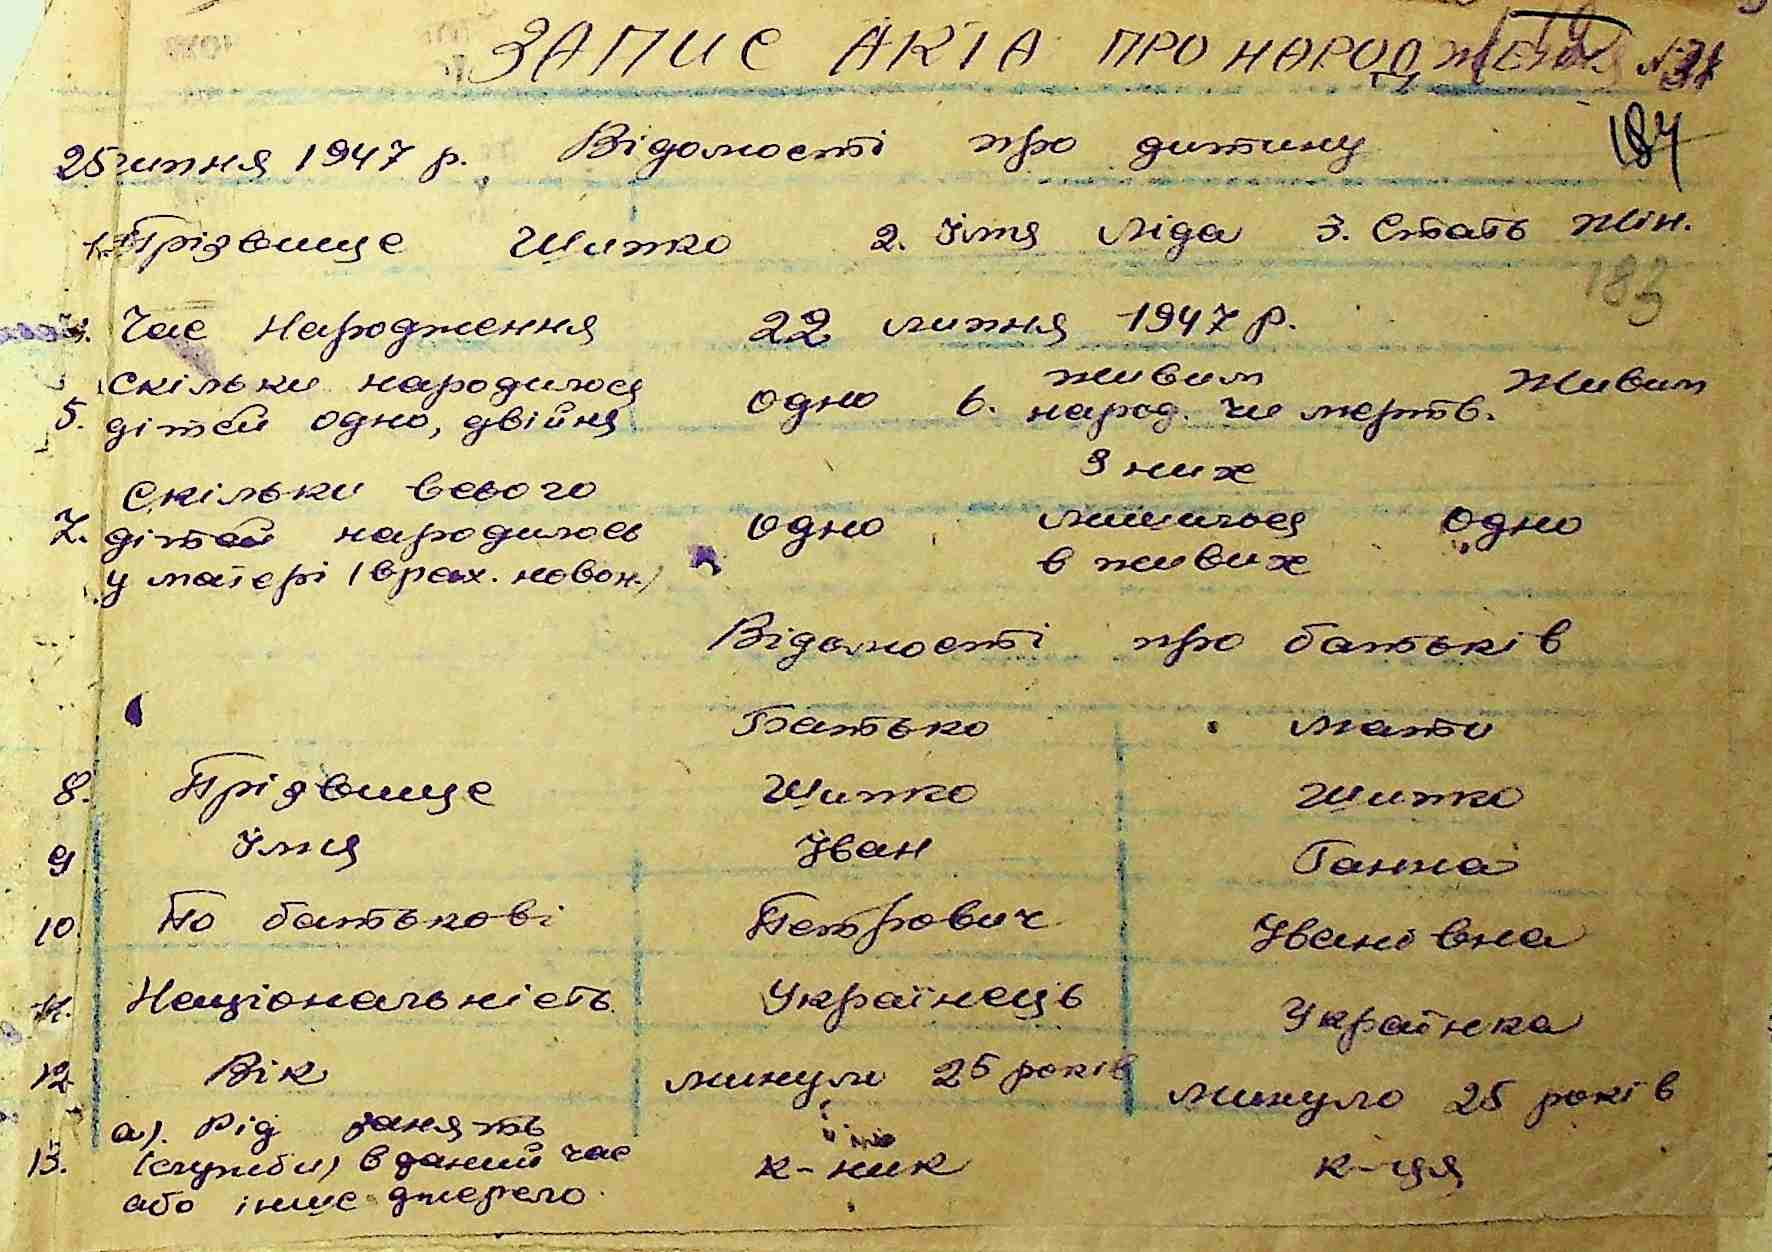 ЗАПИС АКТА ПРО НАРОДЖЕННЯ №
25 липня 1947 р. Відомості про дитину 184
1. Прізвище Шипко 2. Імя Ліда 3. Стать жін.
183
4. Час народження 22 липня 1947 р.
Скільки народилося живим Живим
5. дітей одно, двійня одно 6. народ. чи мертв.
З них
Скільки всього
7. дітей народилось одно лишилося одно
у матері (врах. новон.) в живих
Відомості про батьків
Батько мати
8. Прізвище Шипко Шипко
9 Імя Іван Ганна
10. По батькові Петрович Іванівна
11. Національність Українець Українка
12 Вік минуло 25 років минуло 25 років
а). Рід занять
13. (служби) в даний час к-ник к-ця
або інше джерело